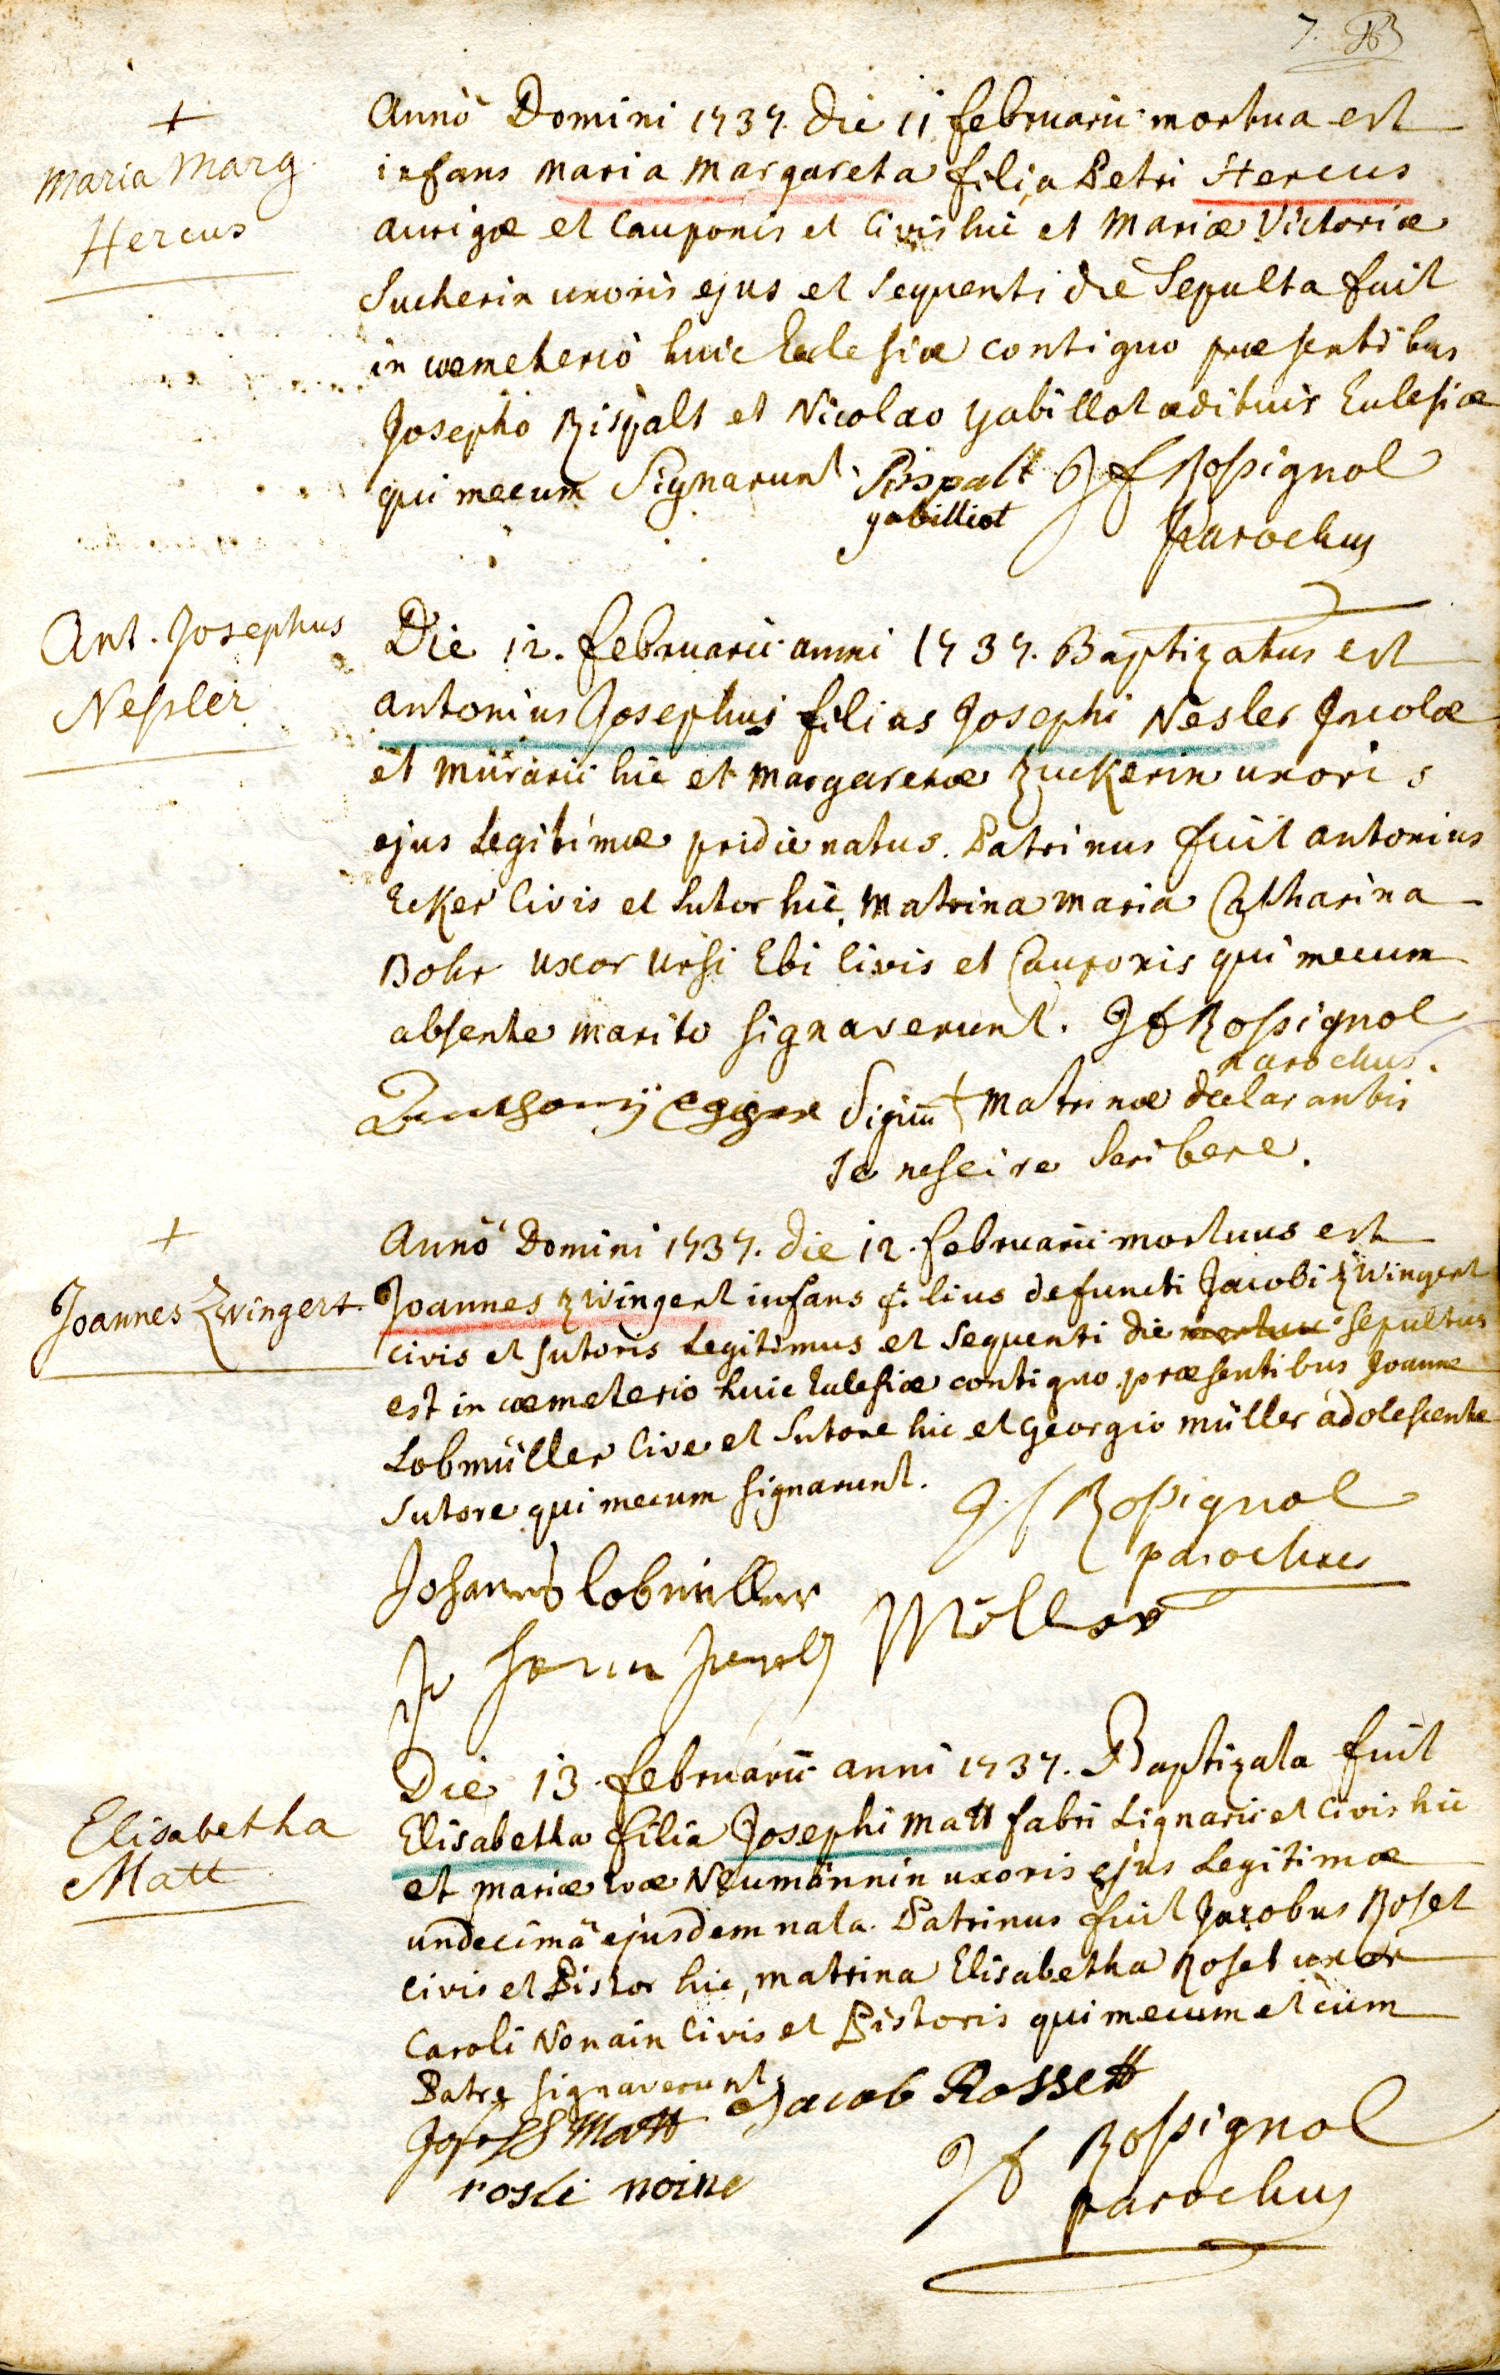 7.
+
Maria Marg
Hercus
Anno Domini 1737. die 11 februarii mortua est
infans Maria Margareta filia Petri Hercus
aurigæ et Cauponis et Civis hic et Mariæ Victoriæ
Sucherin uxoris ejus et sequenti die Sepulta fuit
in cœmeterio huic Ecclesiæ contiguo præsentibus
Josepho Rispalt et Nicolao gabillot ædituis Ecclesiæ
qui mecum Signarunt. Rispalt J f Rossignol
gabilliot parochus
Ant. Josephus
Nessler
Die 12. februarii anni 1737. Baptizatus est
antonius Josephus filius Josephi Nesler Incolæ
et murarii hic et Margaretæ Zuckerin uxoris
ejus Legitimæ pridie natus. Patrinus fuit antonius
Ecker Civis et Sutor hic, Matrina Maria Catharina
Bohr uxor Ursi Ebi Civis et Cauponis qui mecum
absente marito signaverunt. J f Rossignol
parochus.
Anthony Egger Signum + Matrinæ declarantis
se nescire scribere.
+
Joannes Zwingert.
Anno Domini 1737. die 12. februarii mortuus est
Joannes Zwingert infans filius defuncti Jacobi Zwingert
civis et sutoris Legitimus et sequenti die mortuus sepultus
est in cœmeterio huic Ecclesiæ contiguo præsentibus Joanne
Lobmüller Cive et Sutore hic et georgio müller adolescente
Sutore qui mecum signarunt.
J f Rossignol
parochus
Johannes Lobmiller
Miller
Elisabetha
Matt
Die 13. februarii anni 1737. Baptizata fuit
Elisabetha filia Josephi Matt fabri Lignarii et Civis hic
et Mariæ Evæ Neumännin uxoris ejus Legitimæ
undecimâ ejusdem nata. Patrinus fuit Jacobus Roset
civis et Pistor hic, matrina Elisabetha Roset uxor
Caroli Nonain Civis et Pistoris qui mecum et cum
Patre signaverunt.
Joseph Matt Jacob Rossett
J f Rossignol
parochus